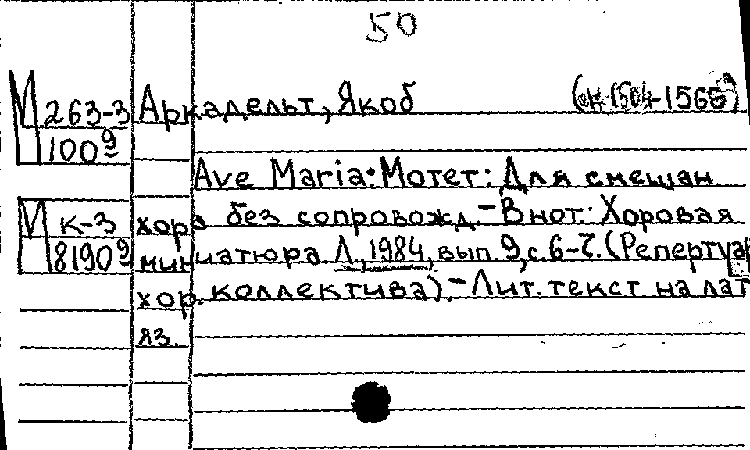 50
М 263-3 Аркадельт, Якоб (ок. 1504-1568)
100 9
Ave Maria: Мотет: Для смешан
М К-3 хора без сопровожд. - В нот: Хоровая
8190 9 миниатюра Л., 1984, вып. 9, с. 6-7. (Репертуар
хор. коллектива). - Лит. текст на лат
яз.